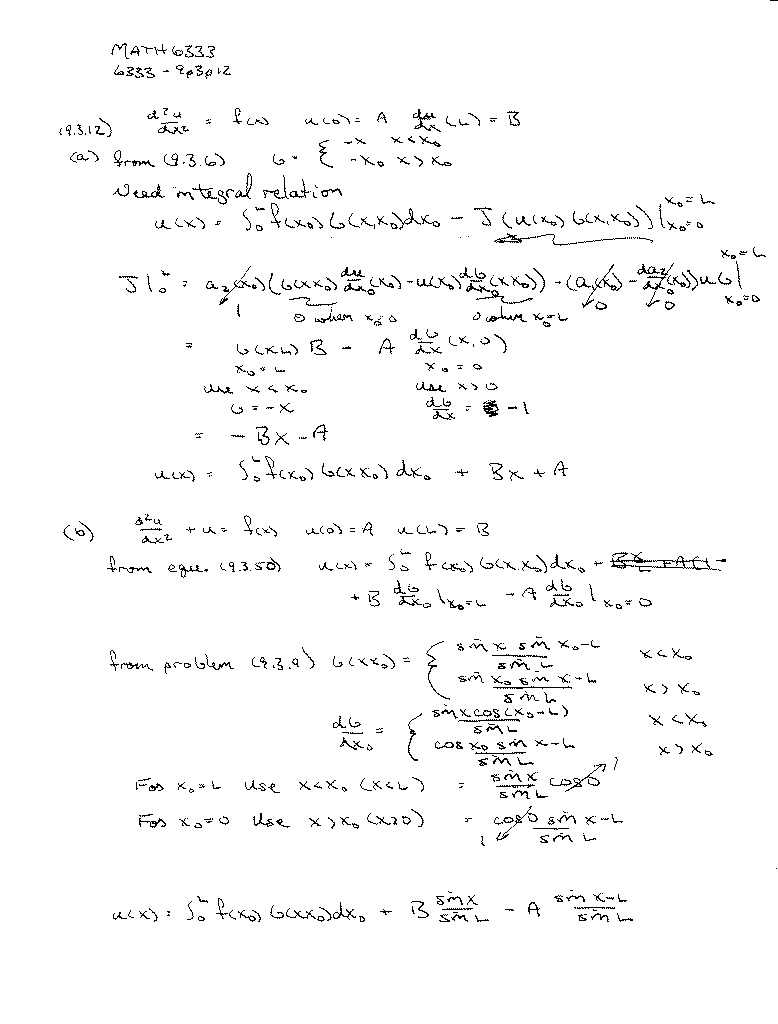 MATH 6333
6333 - 9p3p12
(9.3.12) d²u/dx² = f(x) u(0) = A du/dx (L) = B
(a) from (9.3.6) G = { -x x<x₀
-x₀ x>x₀
Need integral relation
u(x) = ∫₀ᴸ f(x₀) G(x,x₀) dx₀ - J(u(x₀) G(x,x₀)) |x₀=L x₀=0
J|₀ᴸ = a₂(x₀)(G(xx₀) du/dx₀ (x₀) - u(x₀) dG/dx₀ (xx₀)) - (a₁(x₀) - da₂/dx₀ (x₀)) uG | x₀=L x₀=0
1 0 when x₀=0 0 when x₀=L 0 0
= G(xL) B - A dG/dx (x,0)
x₀=L x₀=0
use x<x₀ use x>0
G = -x dG/dx = -1
= -Bx - A
u(x) = ∫₀ᴸ f(x₀) G(xx₀) dx₀ + Bx + A
(b) d²u/dx² + u = f(x) u(0) = A u(L) = B
from equ. (9.3.50) u(x) = ∫₀ᴸ f(x₀) G(x,x₀) dx₀ +
+ B dG/dx₀ |x₀=L - A dG/dx₀ |x₀=0
from problem (9.3.9) G(xx₀) = { sin x sin x₀-L / sin L x<x₀
sin x₀ sin x-L / sin L x>x₀
dG/dx₀ = { sin x cos(x₀-L) / sin L x<x₀
cos x₀ sin x-L / sin L x>x₀
For x₀=L use x<x₀ (x<L) = sin x / sin L cos 0 1
For x₀=0 use x>x₀ (x>0) = cos 0 sin x-L / sin L
1
u(x) = ∫₀ᴸ f(x₀) G(xx₀) dx₀ + B sin x / sin L - A sin x-L / sin L